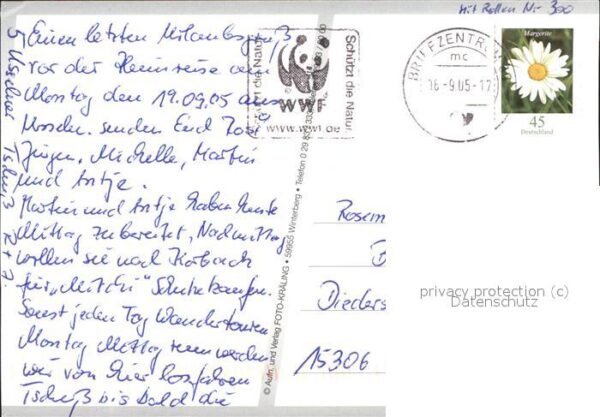 mit Rollen Nr. 300
Einen letzten Urlaubsgruß
vor der Heimreise am
Montag den 19.09.05 aus
senden Euch Rosi,
Jürgen, Michelle, Martin
und Antje.
Martin und Antje haben heute
Mittag zubereitet, Nachmittag
wollen sie nach Korbach
für „Mitchi" Schuhe kaufen.
Sonst jeden Tag Wandertouren
Montag Mittag
wir von hier losfahren
Tschüß bis bald die
5
Tschüß R + J.
Schützt die Natur
WWF
Schützt die Natur
www.wwf.de
BRIEFZENTRUM
mc
16-9.05-17
Margerite
45
Deutschland
© Aufn. und Verlag FOTO-KRÄLING • 59955 Winterberg • Telefon 0 29 83/
Rosem
D
Dieders
15306
privacy protection (c)
Datenschutz